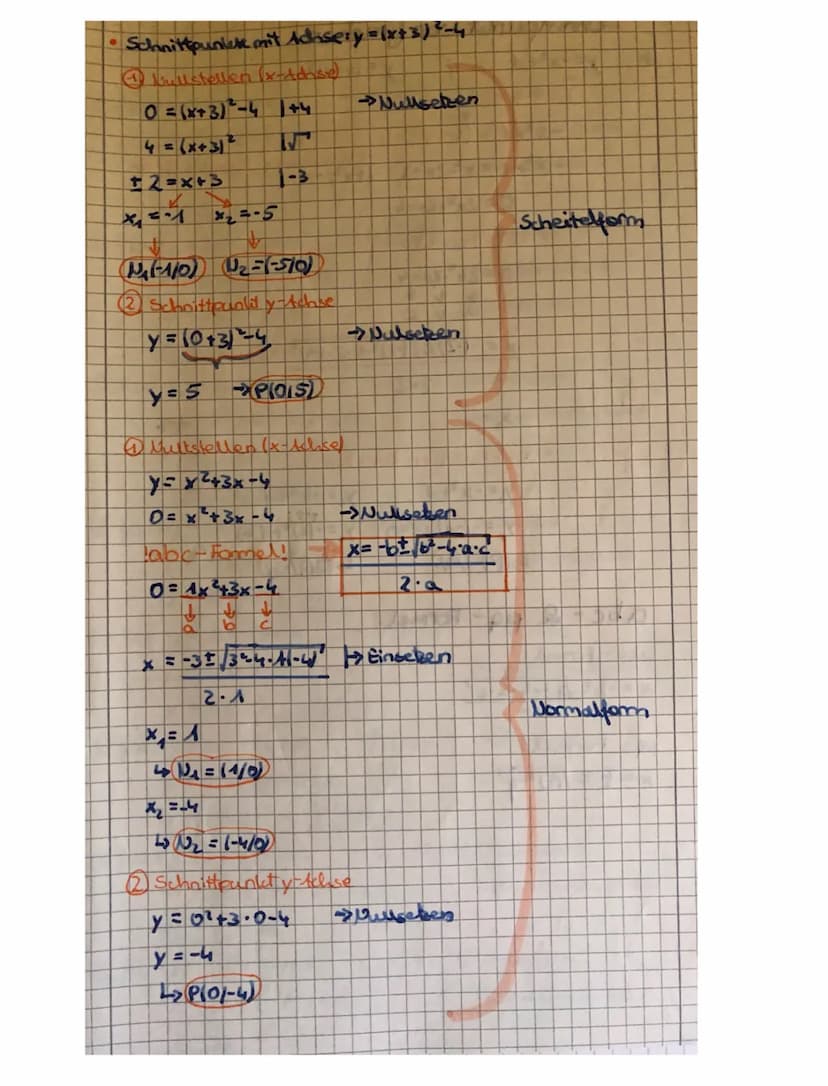 • Schnittpunkte mit Achse: y=(x+3)²-4
① Nullstellen (x-Achse)
0 =(x+3)²-4 |+4 →Nullsetzen
4 = (x+3)² |√
± 2=x+3 |-3
x₁=-1 x₂=-5
↓ ↓
N₁(-1/0) N₂=(-5/0)
Scheitelform
② Schnittpunkt y-Achse
y = (0+3)²-4 →Nullsetzen
y = 5 → P(0/5)
① Nullstellen (x-Achse)
y= x²+3x-4
0= x²+3x-4 →Nullsetzen
!abc-Formel! → x= -b±√b²-4·a·c
2·a
0= 1x²+3x-4
↓ ↓ ↓
a b c
x = -3±√3²-4·1·(-4) |→Einsetzen
2·1
Normalform
x₁= 1
↳ N₁=(1/0)
x₂=-4
↳ N₂ = (-4/0)
② Schnittpunkt y-Achse
y = 0²+3·0-4 →Nullsetzen
y = -4
↳ P(0/-4)